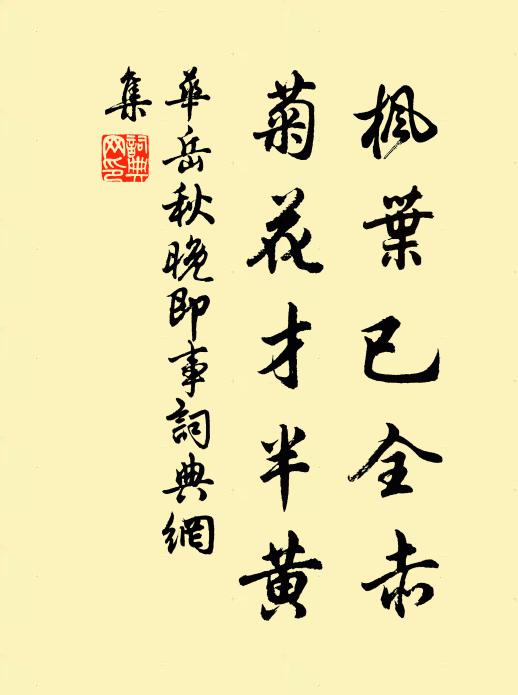 枫葉已全赤
菊花才半黄
華岳秋晚即事詞典網
集
詞典
网印